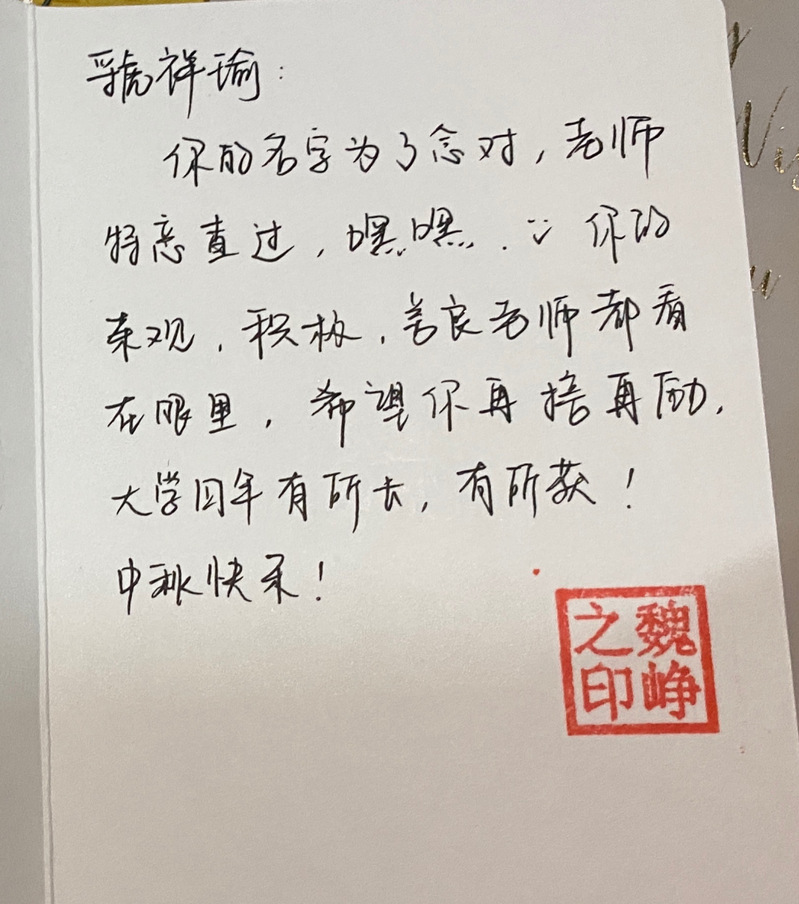 虢祥瑜：
你的名字为了念对，老师
特意查过，嘿嘿. 你的
乐观，积极，善良老师都看
在眼里，希望你再接再励，
大学四年有所去，有所获！
中秋快乐！
魏峥之印